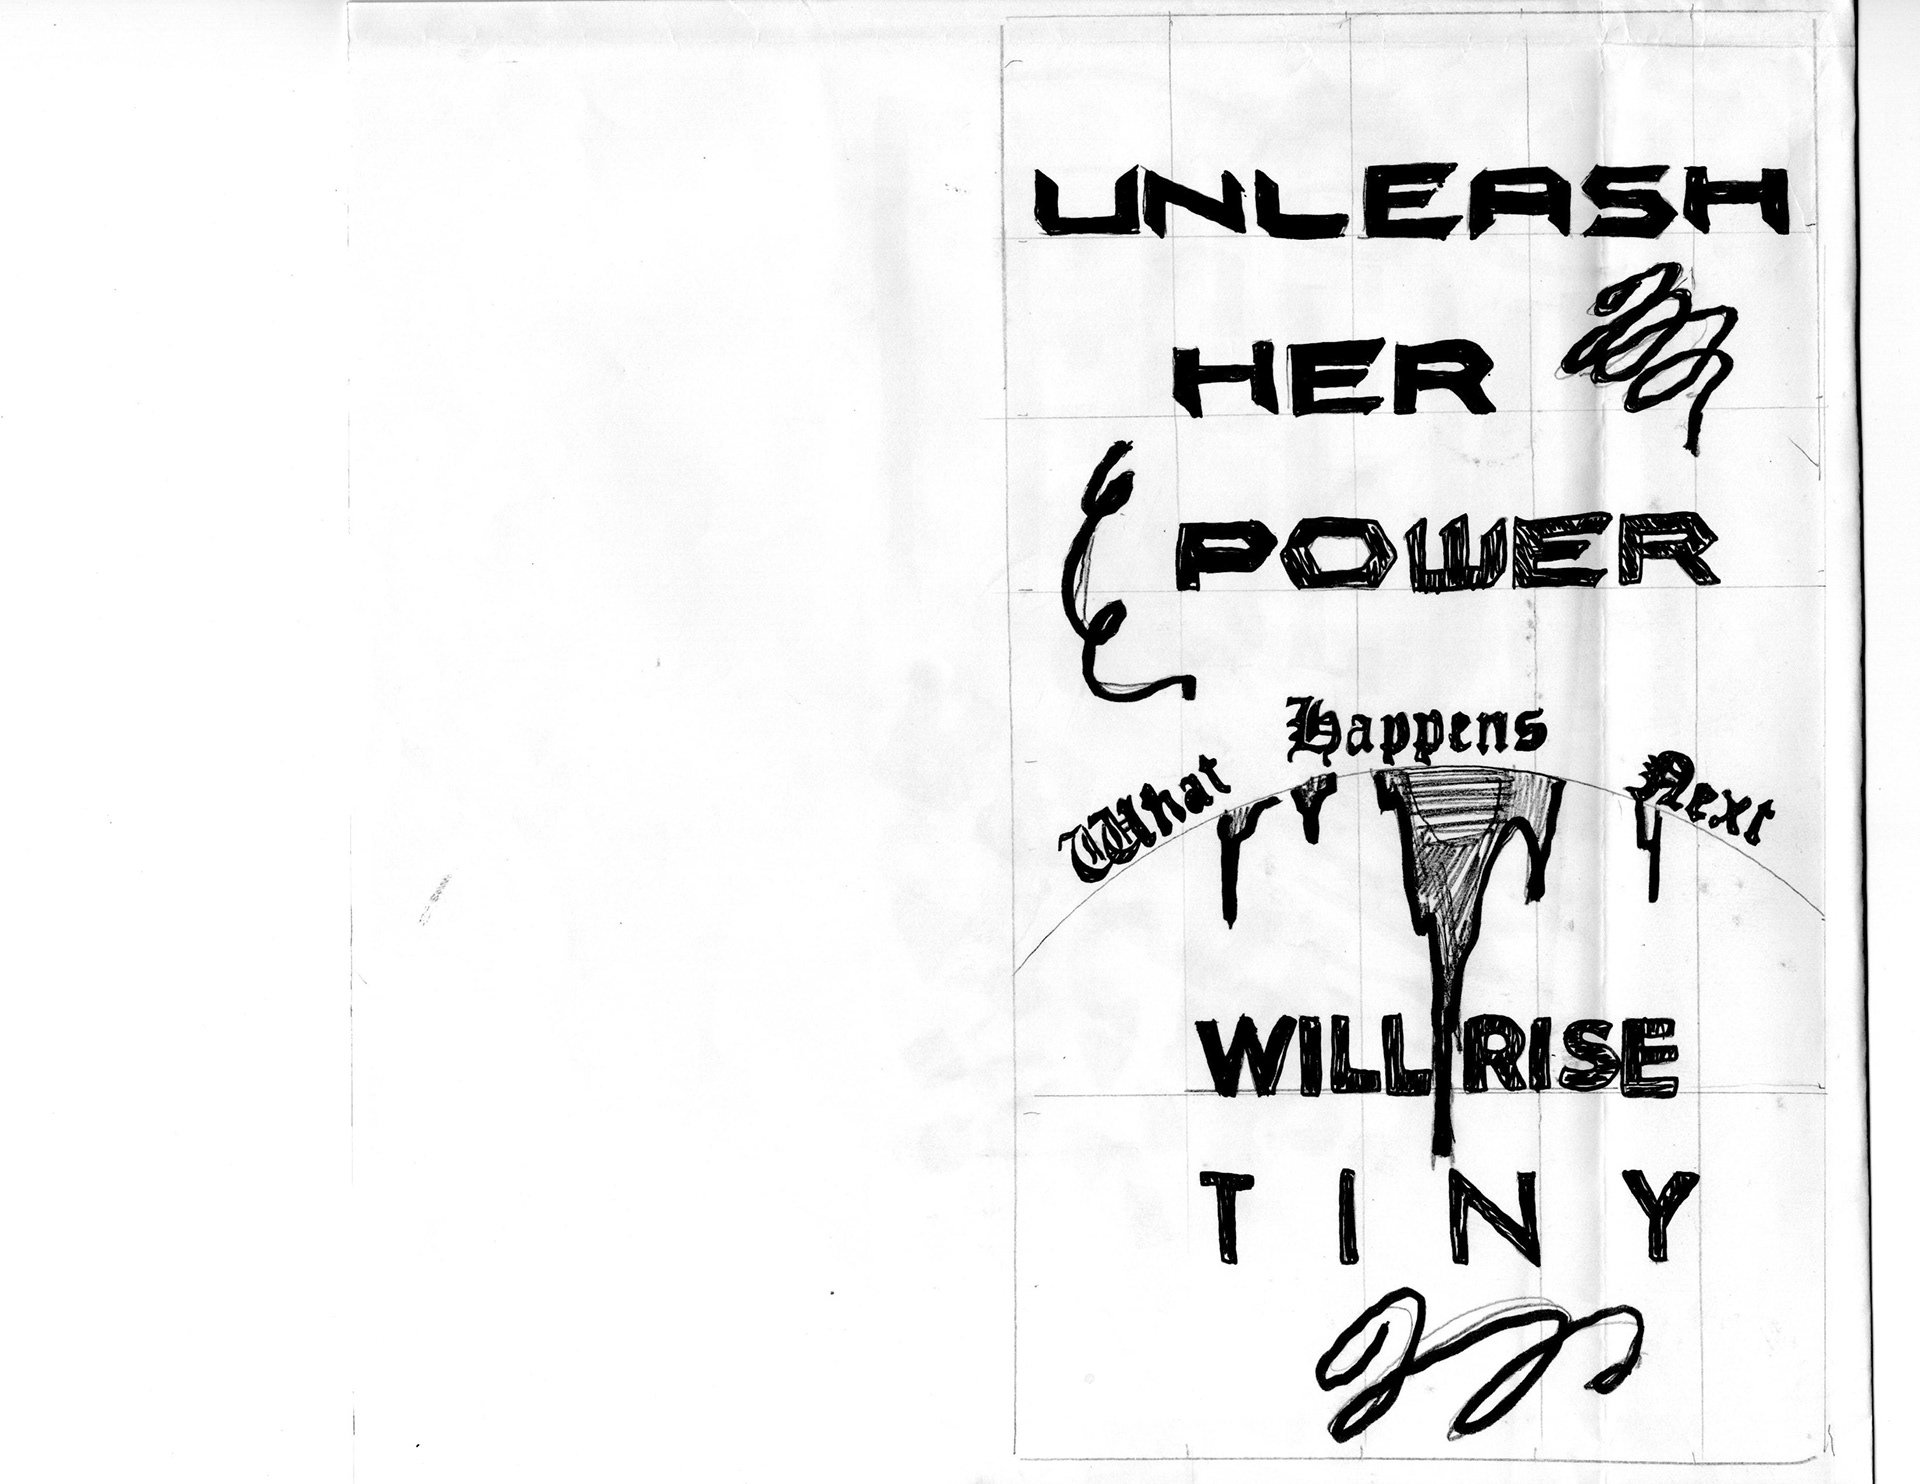 UNLEASH
HER
POWER
What Happens Next
WILL RISE
TINY